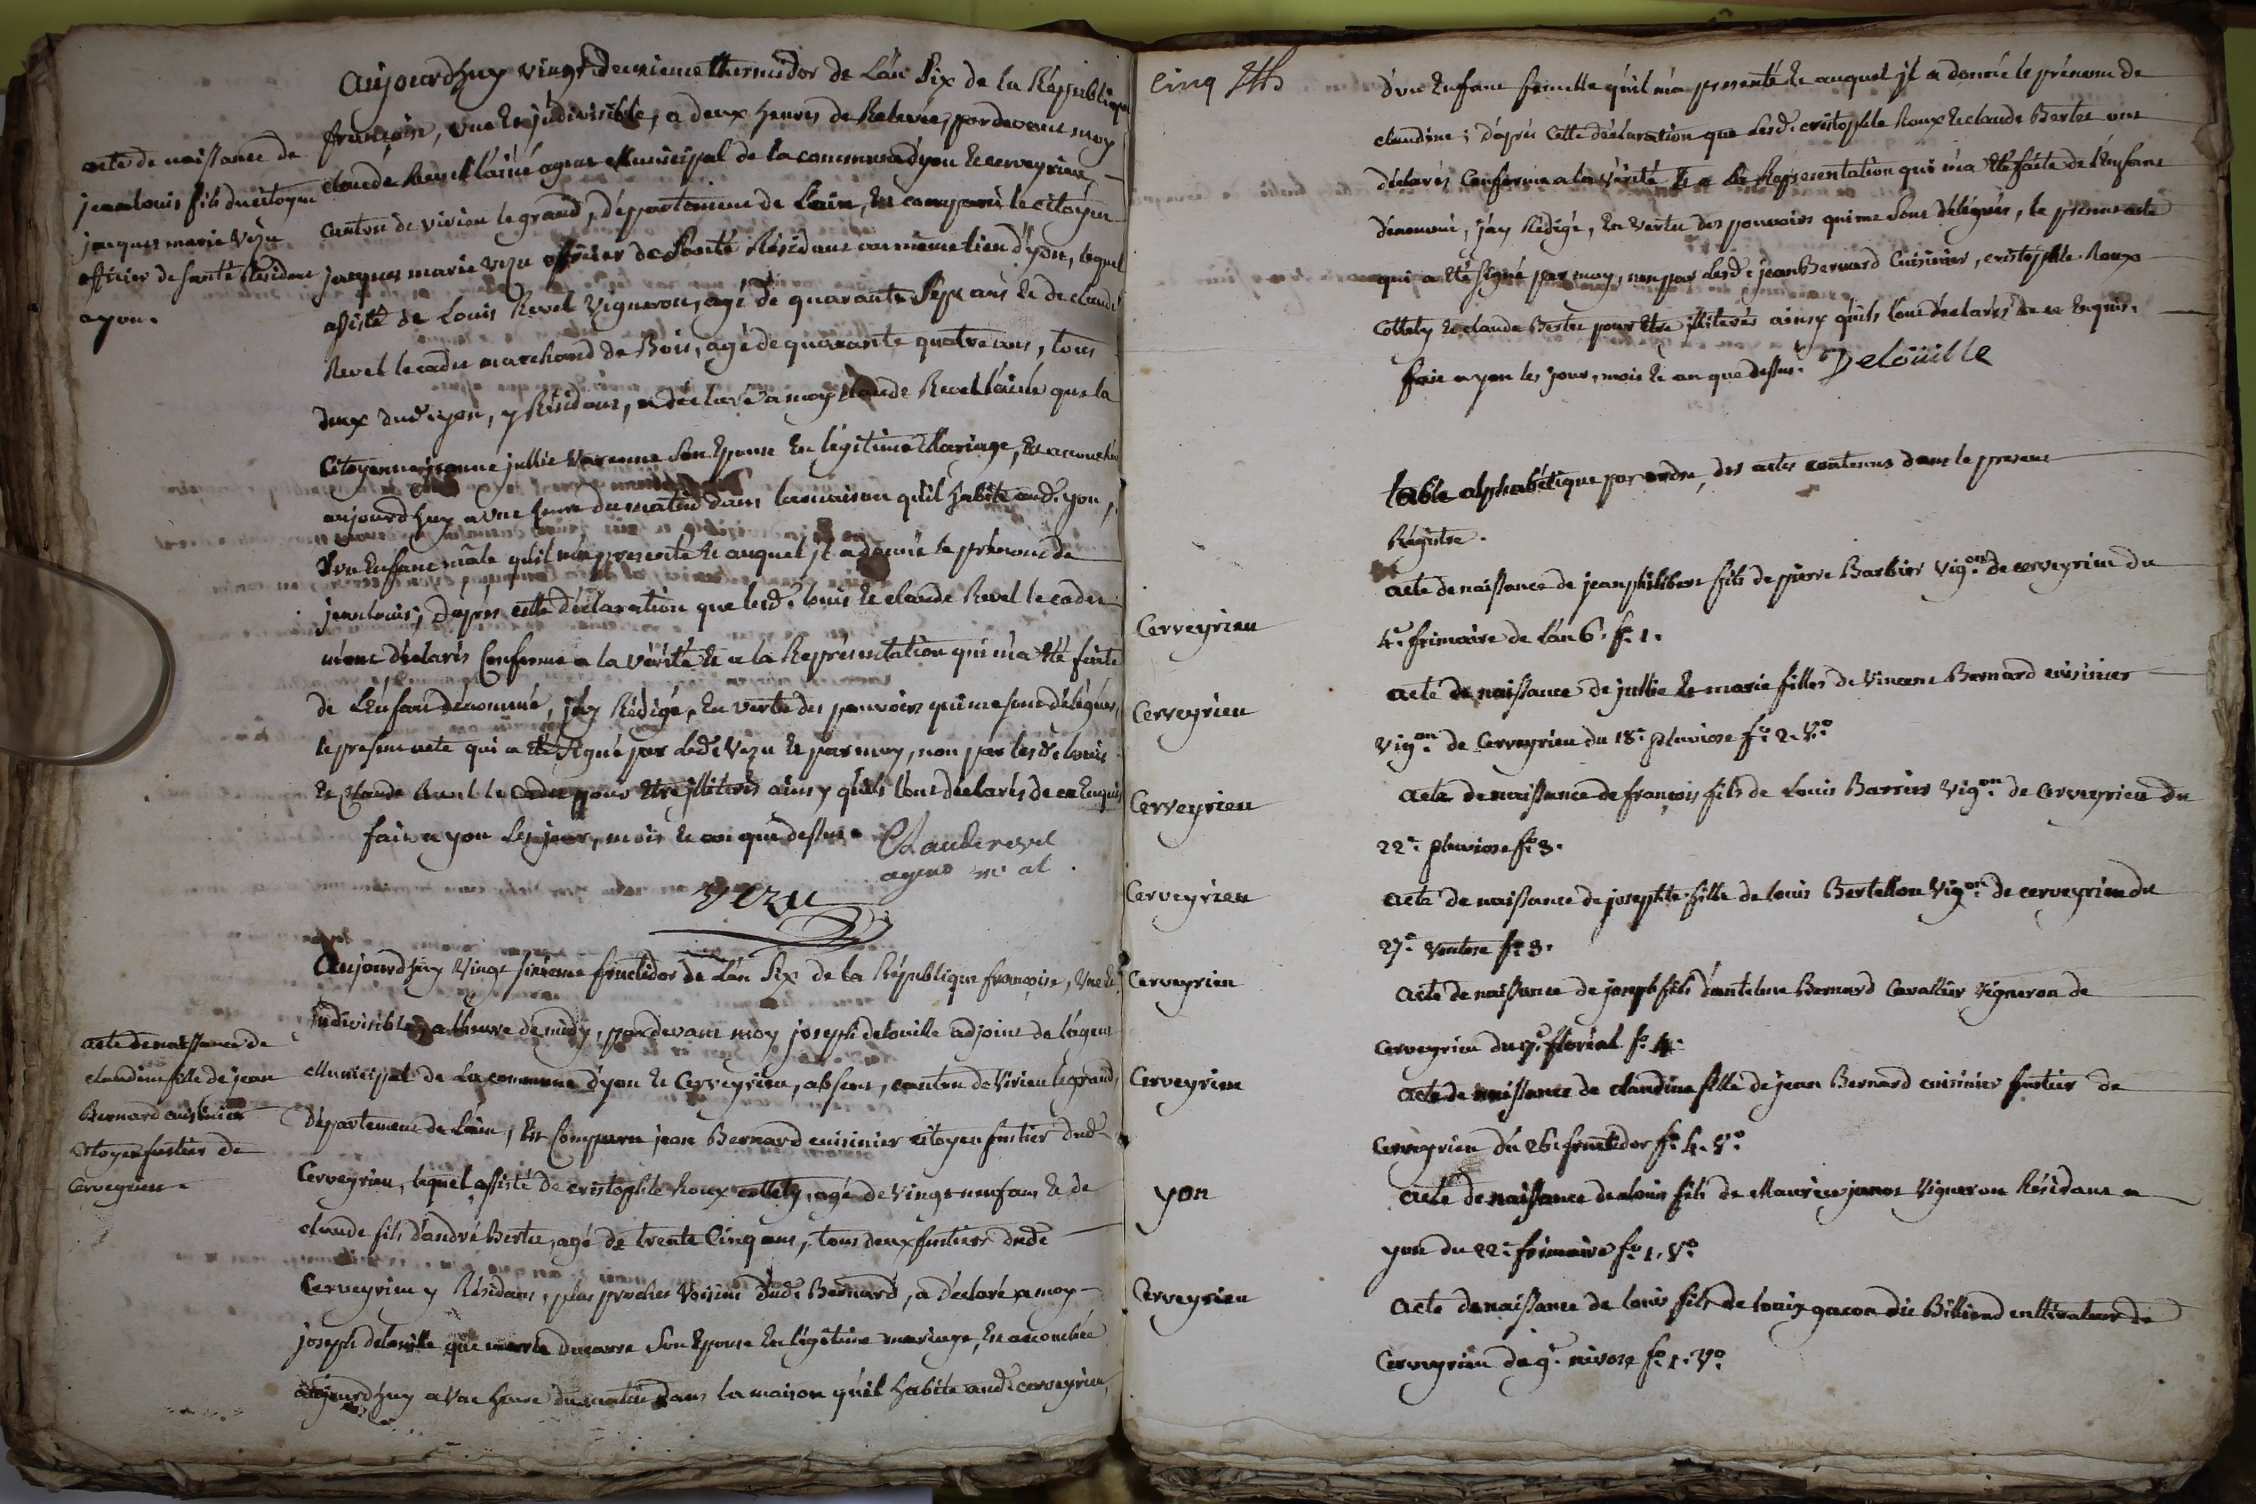 acte de naissance de
jean louis fils du citoyen
jacques marie vezu
officier de santé Résidant
a yon.
Aujourdhuy vingt deuxieme thermidor de L'an Six de la République
françoise, une et indivisible, a deux heures de Relevée, pardevant moy
claude Revel l'ainé agent Municipal de la commune d'yon et cerveyrieu,
canton de virieu le grand, département de L'ain, est comparu le citoyen
jacques marie vezu officier de Santé Résidant au même lieu d'yon, lequel
assisté de Louis Revel vigneron, agé de quarante Sept ans et de claude
Revel le cadet marchand de Bois, agé de quarante quatre ans, tous
deux dud. yon, y Résidant, a déclaré a moy claude Revel l'ainé que la
Citoyenne jeanne jullie varenne Son Epouse En légitime Mariage, Est accouchée
aujourdhuy a une heure du matin dans la maison qu'il habite aud. yon,
d'un Enfant mâle qu'il m'a presenté et auquel jl a donné le prénom de
jean louis; D'apres cette déclaration que lesd. louis et claude Revel le cadet
m'ont déclarés Conforme a la vérité et a la Représentation qui m'a Eté faite
de L'Enfant dénommé, j'ay Rédigé, En vertu des pouvoirs qui me sont délégués,
le present acte qui a été Signé par led. Vezu et par moy, non par lesd. louis
et Claude Revel le cadet pour être jlliterés ainsy qu'ils l'ont déclarés de ce Enquis
fait a yon les jour, mois et an que dessus. Claude revel
agent m al.
vezu
acte de naissance de
claudine fille de jean
Bernard cuisinier
citoyen fustier de
Cerveyrieu.
Aujourdhuy Vingt sixieme fructidor de L'an Six de la République françoise, Une et
Indivisible, a l'heure de midy, pardevant moy joseph delouille adjoint de l'agent
Municipal de La commune d'yon et Cerveyrieu, absent, canton de Virieu le grand,
département de L'ain, Est Comparu jean Bernard cuisinier citoyen fustier dud.
Cerveyrieu, lequel assisté de cristophle Roux collety, agé de Vingt neuf ans et de
claude fils d'andré Bertet, agé de trente Cinq ans, tous deux fustiers dud.
Cerveyrieu y Résidant, plus proches Voisins dud. Bernard, a déclaré a moy
joseph delouille que marie ducarre Son Epouse En légitime mariage, Est accouchée
aujourdhuy a Une heure du matin dans la maison qu'il habite aud. cerveyrieu,
cinq
d'un Enfant femelle qu'il m'a presenté et auquel jl a donné le prénom de
claudine; D'apres Cette déclaration que lesd. cristophle Roux et claude Bertet ont
déclarés Conforme a la Vérité Et a La Représentation qui m'a Eté faite de l'Enfant
dénommé, j'ay Rédigé, En Vertu des pouvoirs qui me Sont délégués, le present acte
qui a été Signé par moy, non par lesd. jean Bernard Cuisinier, cristophle Roux
Collety et claude Bertet pour être jlliterés ainsy qu'ils l'ont déclarés de ce Enquis.
fait a yon les jour, mois et an que dessus. Delouille
table alphabétique par ordre, des actes contenus dans le present
Régitre.
Acte de naissance de jean philibert fils de pierre Barbier vig.on de cerveyrieu du
Cerveyrieu
4.e frimaire de L'an 6. f.o 1.
Acte de naissance de jullie et marie filles de Vincent Bernard cuisinier
Cerveyrieu
vig.on de Cerveyrieu du 18.e pluviose f.o 2. V.o
Acte de naissance de françois fils de Louis Barrier vig.on de Cerveyrieu du
Cerveyrieu
22.e pluviose f.o 3.
Acte de naissance de josephte fille de louis Bertellon vig.on de cerveyrieu du
Cerveyrieu
27.e Ventose f.o 3.
Acte de naissance de joseph fils d'antelme Bernard Cavallier vigneron de
Cerveyrieu
Cerveyrieu du 7.e floréal f.o 4.
Acte de naissance de claudine fille de jean Bernard cuisinier fustier de
Cerveyrieu
Cerveyrieu du 26. fructidor f.o 4. V.o
Acte de naissance de louis fils de Maurice janot Vigneron Résidant a
yon
yon du 22.e frimaire f.o 1. V.o
Acte de naissance de louis fils de louis gacon dit Billiend cultivateur de
Cerveyrieu
Cerveyrieu du 9.e nivose f.o 1. V.o